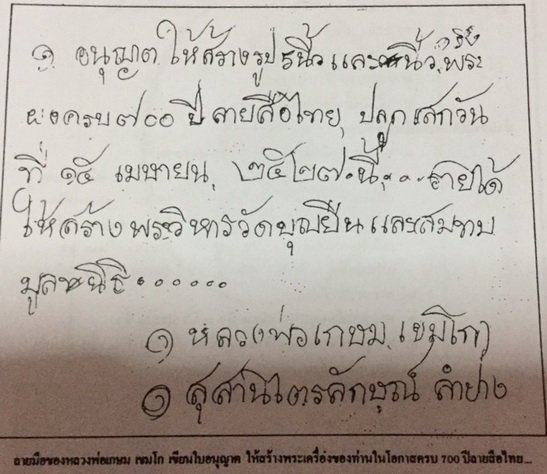 ๑ อนุญาต ให้สร้างรูป ๕นิ้ว และ ๙นิ้ว, พระ
ผงครบ ๗๐๐ ปี ลายสือไทย, ปลุกเสกวัน
ที่ ๑๕ เมษายน, ๒๕๒๗ นี้, . . . รายได้
ให้สร้างพระวิหารวัดบุญยืน และสมทบ
มูลหนิธิ . . . . . .
๑ หลวงพ่อเกษม (เขมิโก)
๑ สุสานไตรลักษณ์ ลำปาง
ลายมือของหลวงพ่อเกษม เขมโก เขียนใบอนุญาต ให้สร้างพระเครื่องของท่านในโอกาสครบ 700 ปีลายสือไทย...